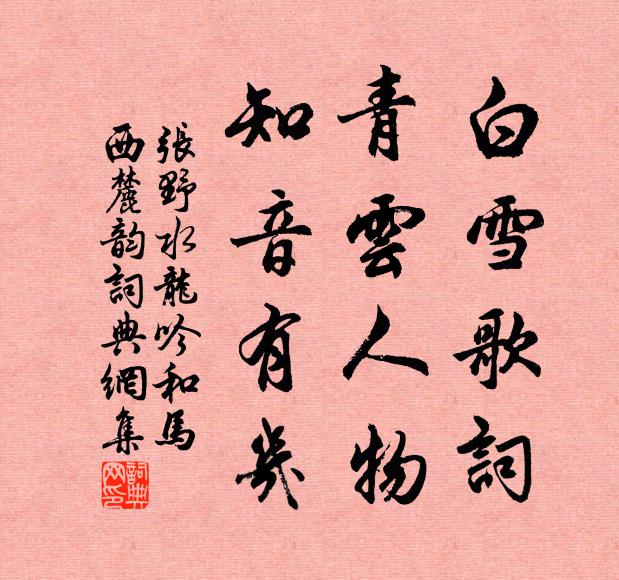 白雪歌詞
青雲人物
知音有幾
張野水龍吟和馬
西麓韵詞典網集
詞典
网印